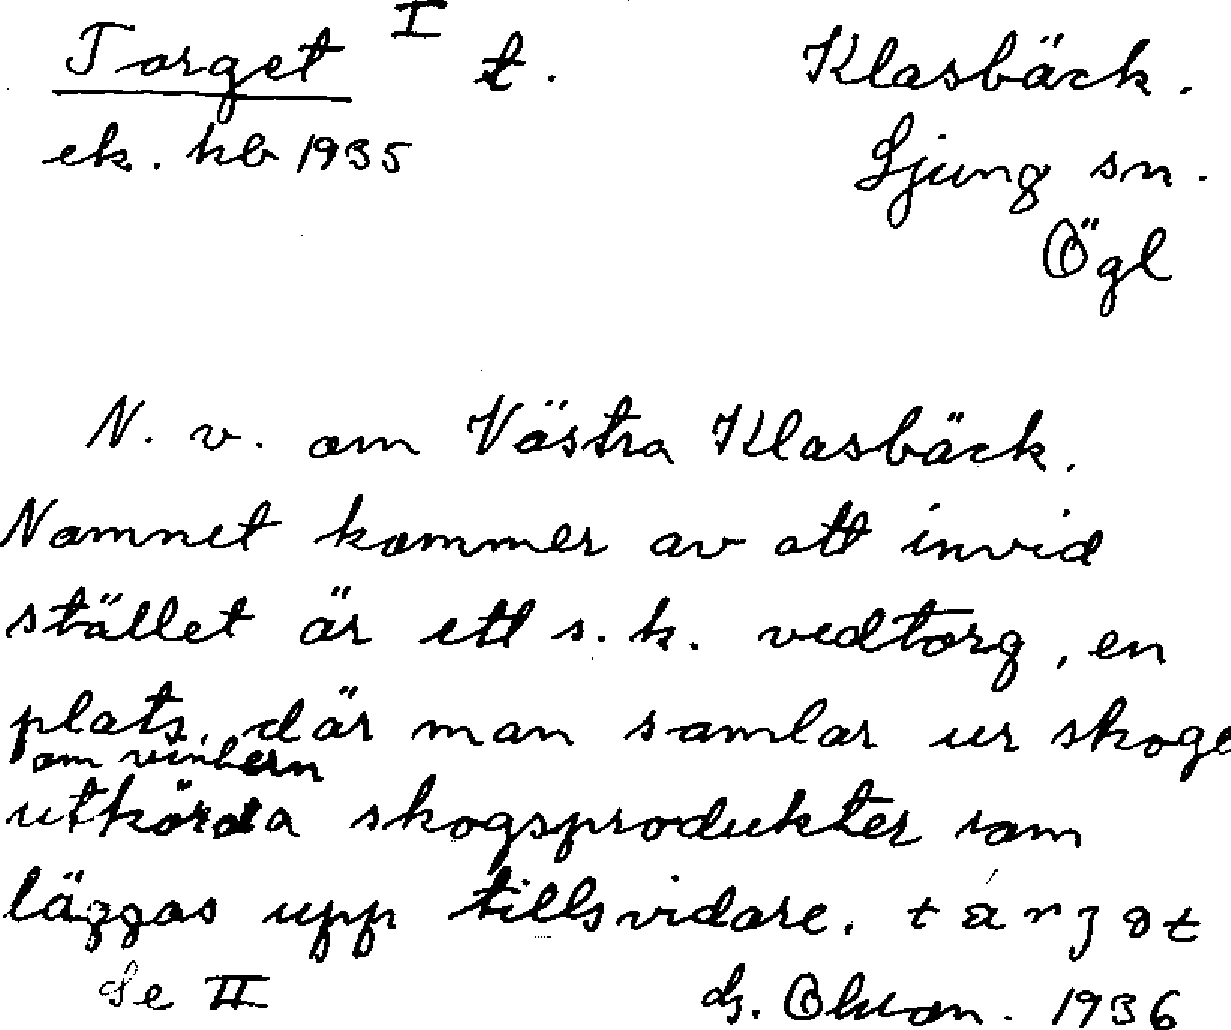 Torget I t. Klasbäck.
ek. kb 1935 Ljung sn.
Ögl
N. v. om Västra Klasbäck.
Namnet kommer av att invid
stället är ett s. k. vedtorg, en
plats, där man samlar ur skoge
om vintern
utkörda skogsprodukter som
läggas upp tillsvidare.
Se II 1936